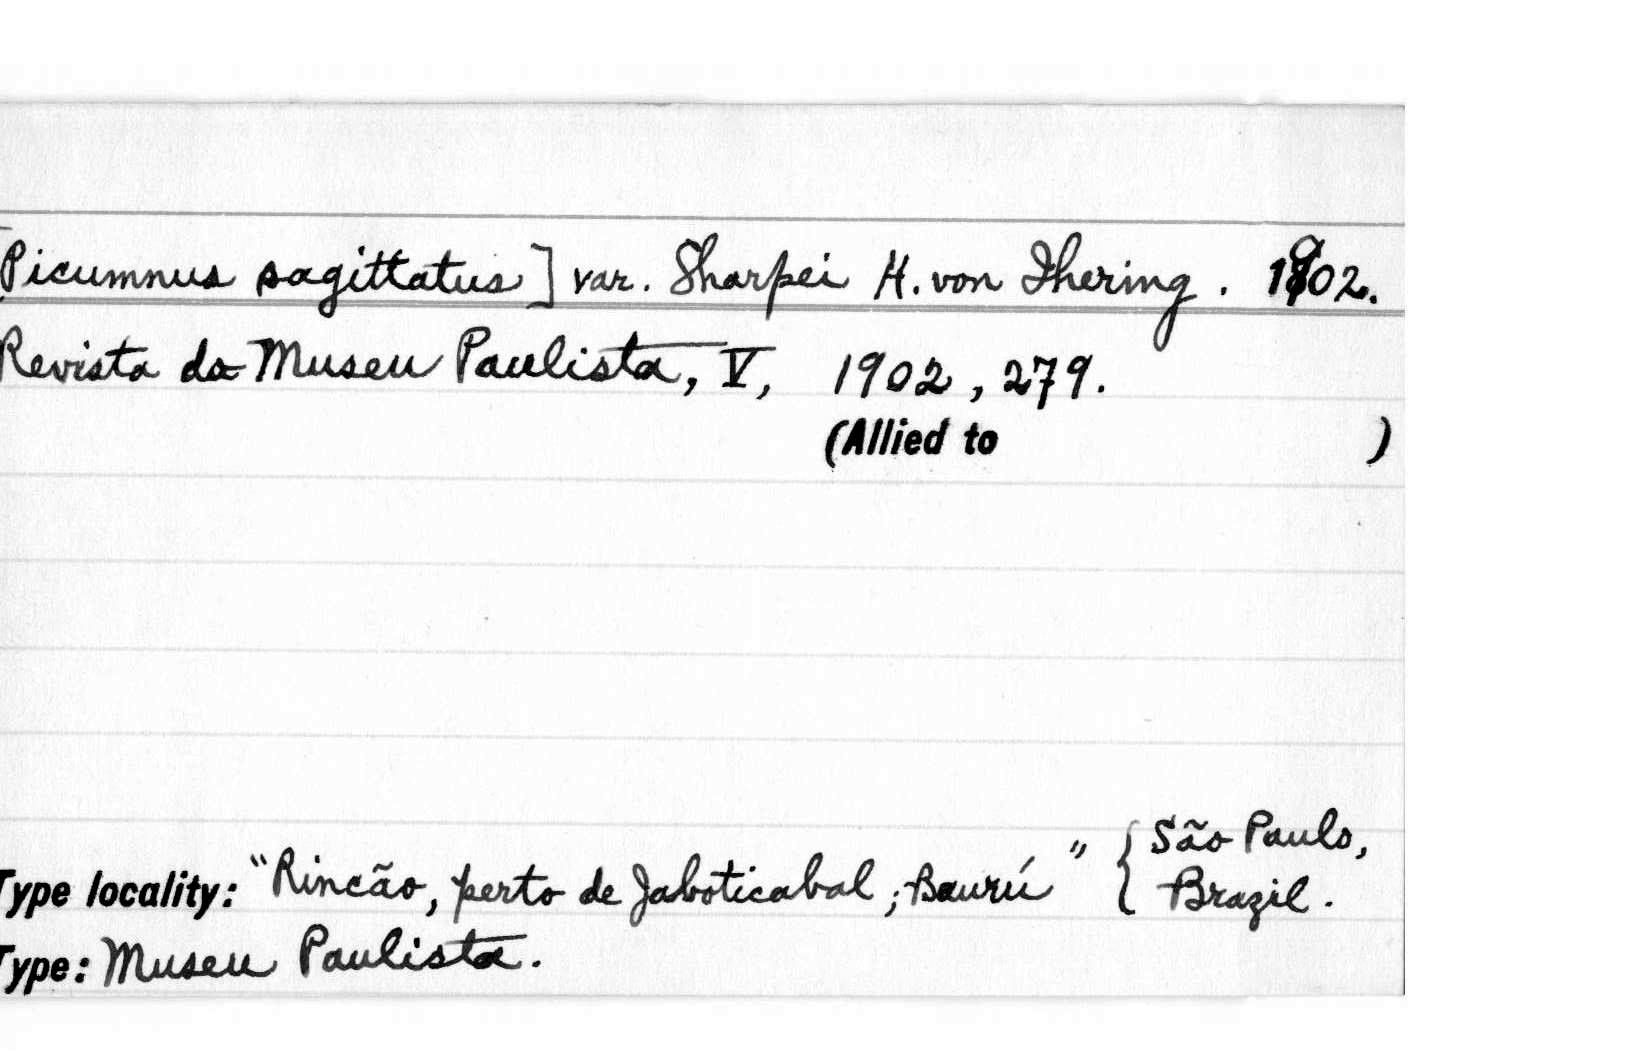 [Picumnus sagittatus] var. Sharpei H. von Ihering. 1902.
Revista do Museu Paulista, V, 1902, 279.
(Allied to )
Type locality: "Rincão, perto de Jaboticabal; Baurú" { São Paulo,
Brazil.
Type: Museu Paulista.